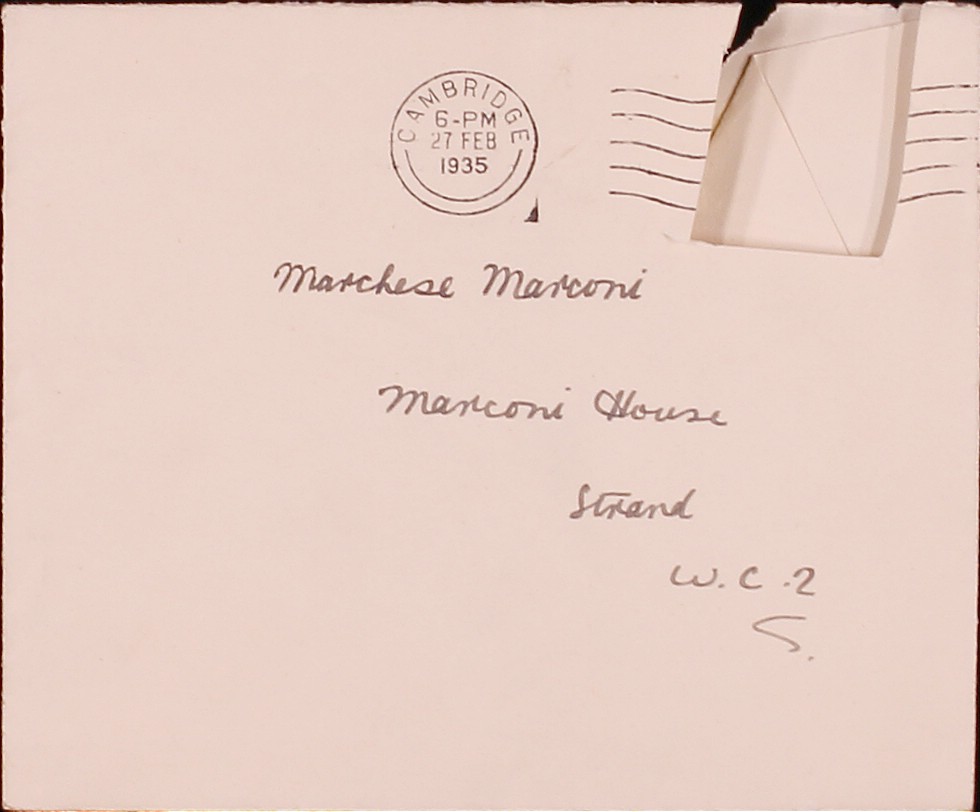 CAMBRIDGE
6-PM
27 FEB
1935
Marchese Marconi
Marconi House
Strand
W.C.2